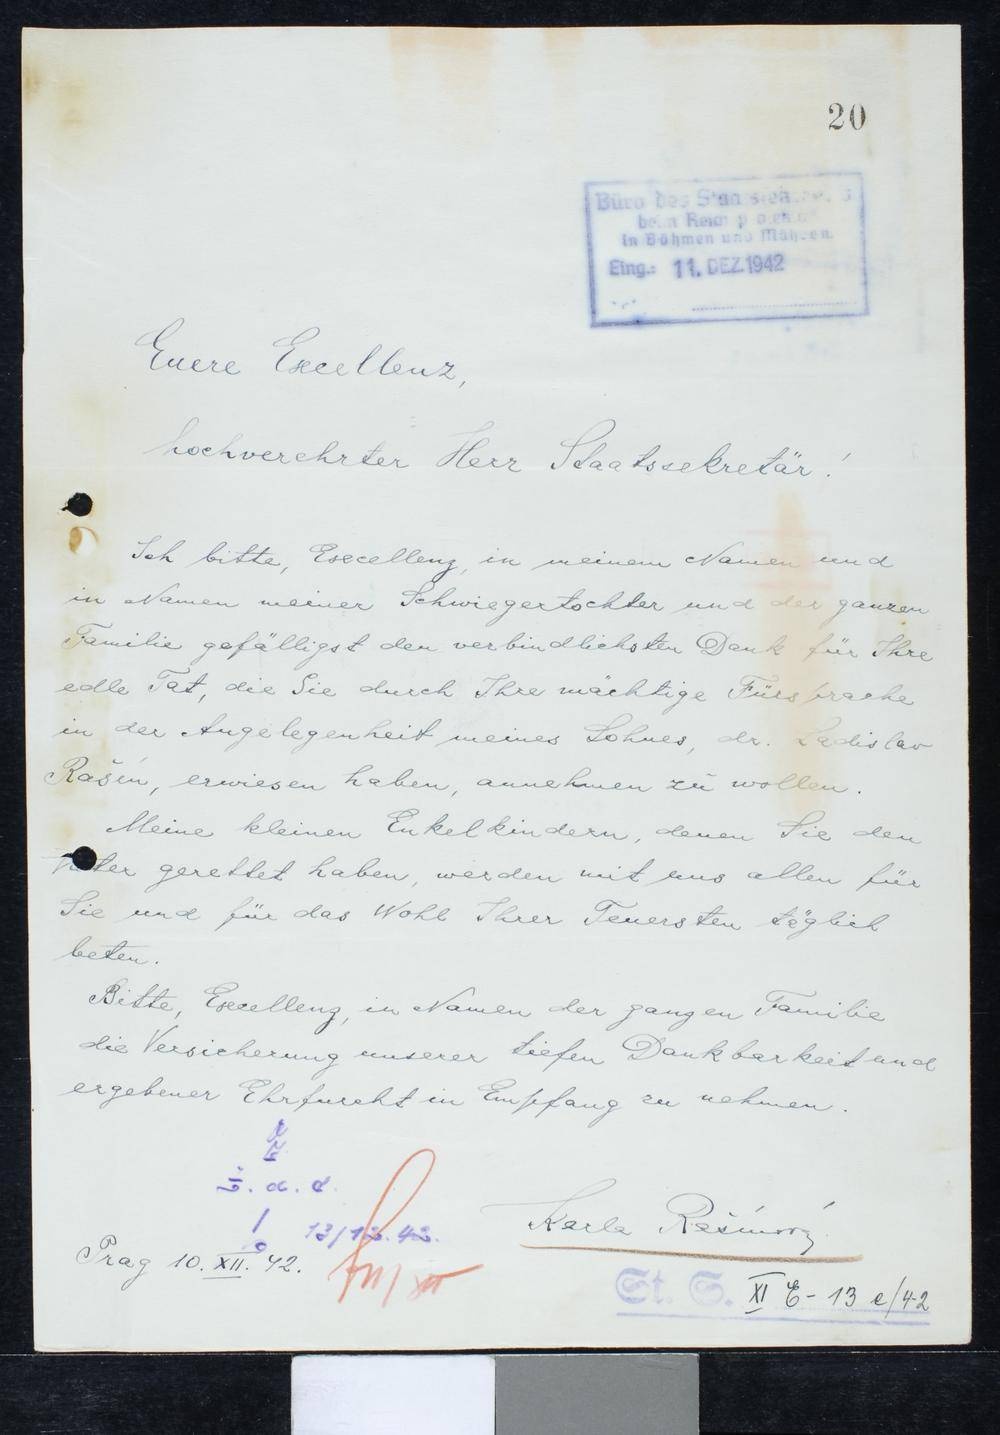 20
Büro des Staatssekretärs
beim Reichsprotektor
in Böhmen und Mähren.
Eing.: 11. DEZ. 1942
Euere Excellenz,
hochverehrter Herr Staatssekretär!
Ich bitte, Excellenz, in meinem Namen und
in Namen meiner Schwiegertochter und der ganzen
Familie gefälligst den verbindlichsten Dank für Ihre
edle Tat, die Sie durch Ihre mächtige Fürsprache
in der Angelegenheit meines Sohnes, dr. Ladislav
Rašín, erwiesen haben, annehmen zu wollen.
Meine kleinen Enkelkindern, denen Sie den
Vater gerettet haben, werden mit uns allen für
Sie und für das Wohl Ihrer Teuersten täglich
beten.
Bitte, Excellenz, in Namen der ganzen Familie
die Versicherung unserer tiefen Dankbarkeit und
ergebener Ehrfurcht in Empfang zu nehmen.
z. d. A.
13/12. 42.
Karla Rašínová
Prag 10. XII. 42.
St. S. XI E - 13 e/42